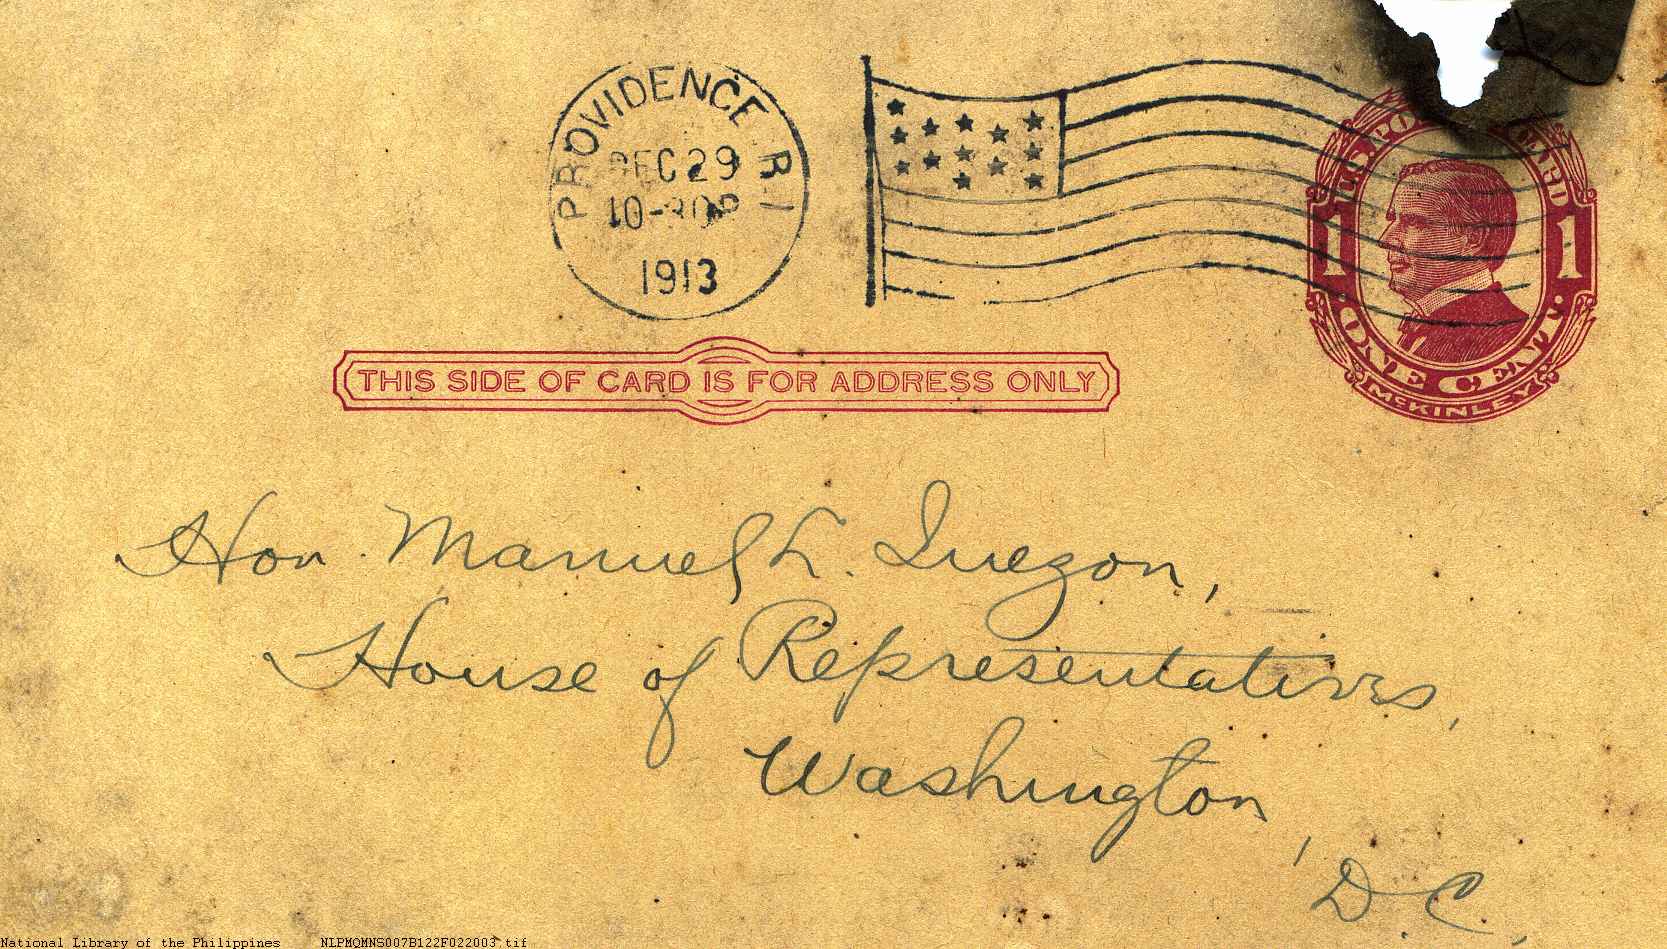 PROVIDENCE R.I.
DEC 29
10-30P
1913
1 1
ONE CENT
McKINLEY
THIS SIDE OF CARD IS FOR ADDRESS ONLY
Hon. Manuel L. Quezon,
House of Representatives,
Washington,
D.C.
National Library of the Philippines NLPMQMNS007B122F022003.tif